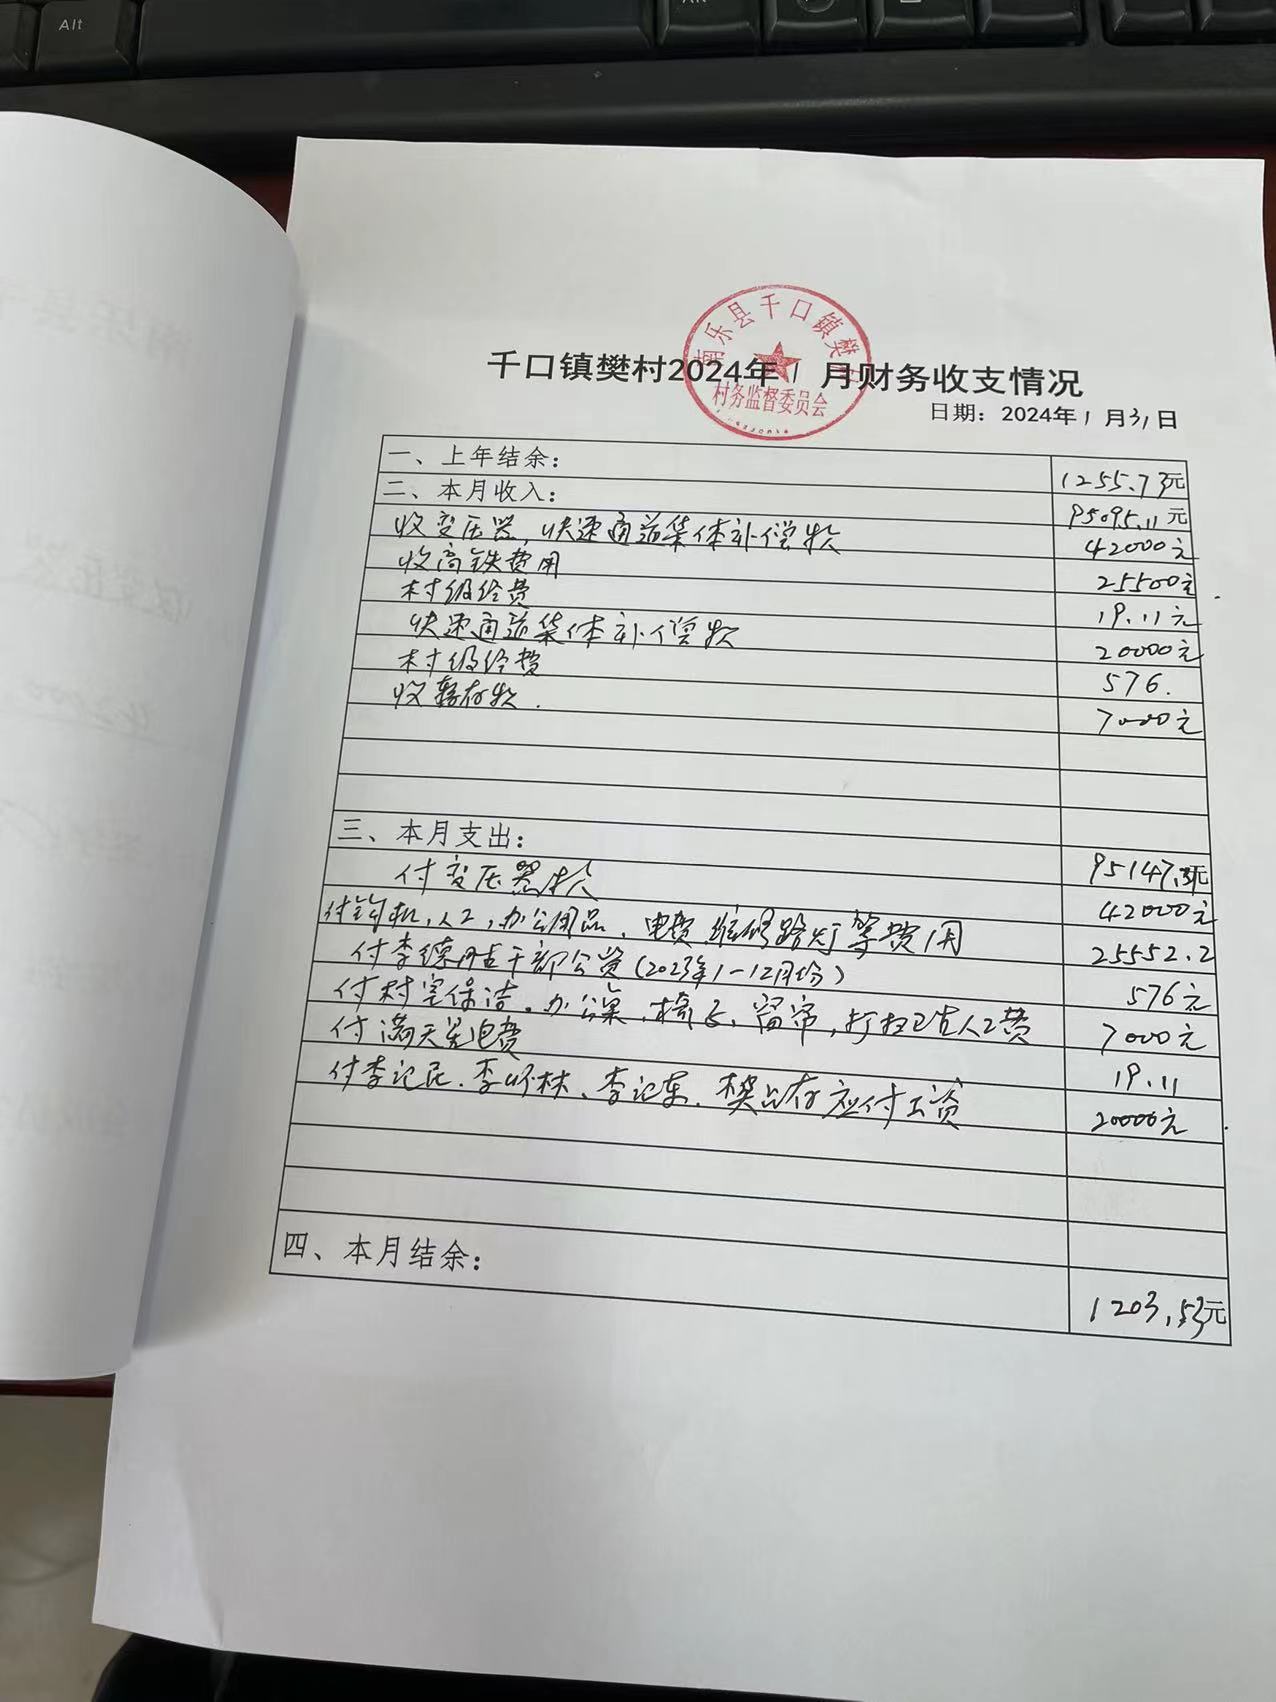 Alt
南乐县千口镇樊
村务监督委员会
千口镇樊村2024年1月财务收支情况
日期：2024年1月31日
一、上年结余： 1255.73元
二、本月收入： 95095.11元
收变压器,快速通道集体补偿款 42000元
收高铁费用 25500元
村级经费 19.11元
快速通道集体补偿款 20000元
村级经费 576.
收暂存款. 7000元
三、本月支出： 95147.31元
付变压器款 42000元
付钩机,人工,办公用品、电费 维修路灯等费用 25552.2
付李德 干部公资(2023年1-12月份) 576元
付村室保洁。办公桌、椅子、窗帘,打扫卫生人工费 7000元
付满天 电费 19.11
付李记民.李 林、李记东.樊 存应付工资 20000元
四、本月结余： 1203.53元